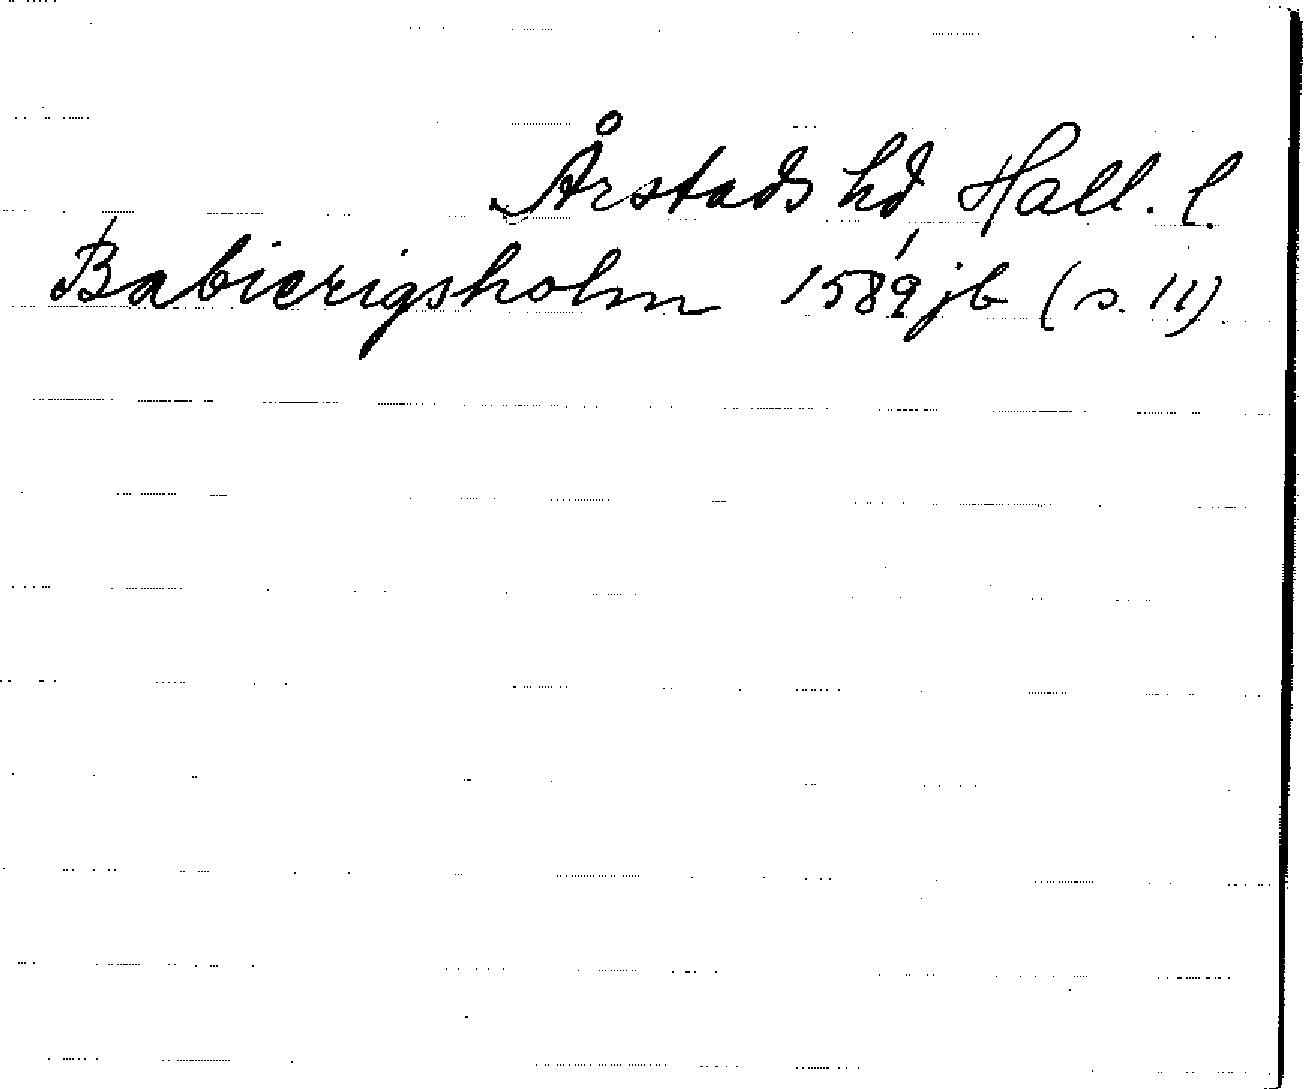 Årstads hd Hall. l.
Babierigsholm 1589 jb (s. 11)